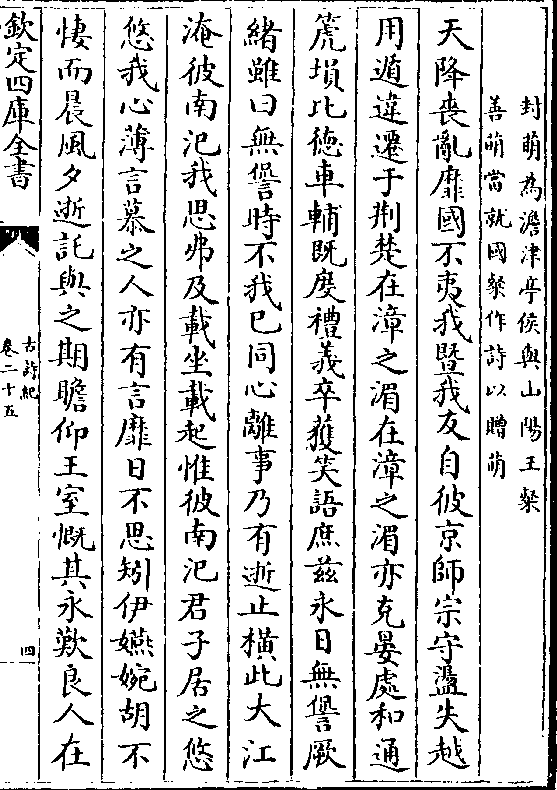 封萌為澹津亭侯與山陽王粲
善萌當就國粲作詩以贈萌
天降喪亂靡國不夷我暨我友自彼京師宗守盪失越
用遁違遷于荆楚在漳之湄在漳之湄亦克晏處和通
箎塤比徳車輔既度禮義卒獲笑語庶兹永日無諐厥
緒雖曰無諐時不我已同心離事乃有逝止横此大江
淹彼南汜我思弗及載坐載起惟彼南汜君子居之悠
悠我心薄言慕之人亦有言靡日不思矧伊嬿婉胡不
悽而晨風夕逝託與之期瞻仰王室慨其永歎良人在
欽定四庫全書
古詩紀
卷二十五
四